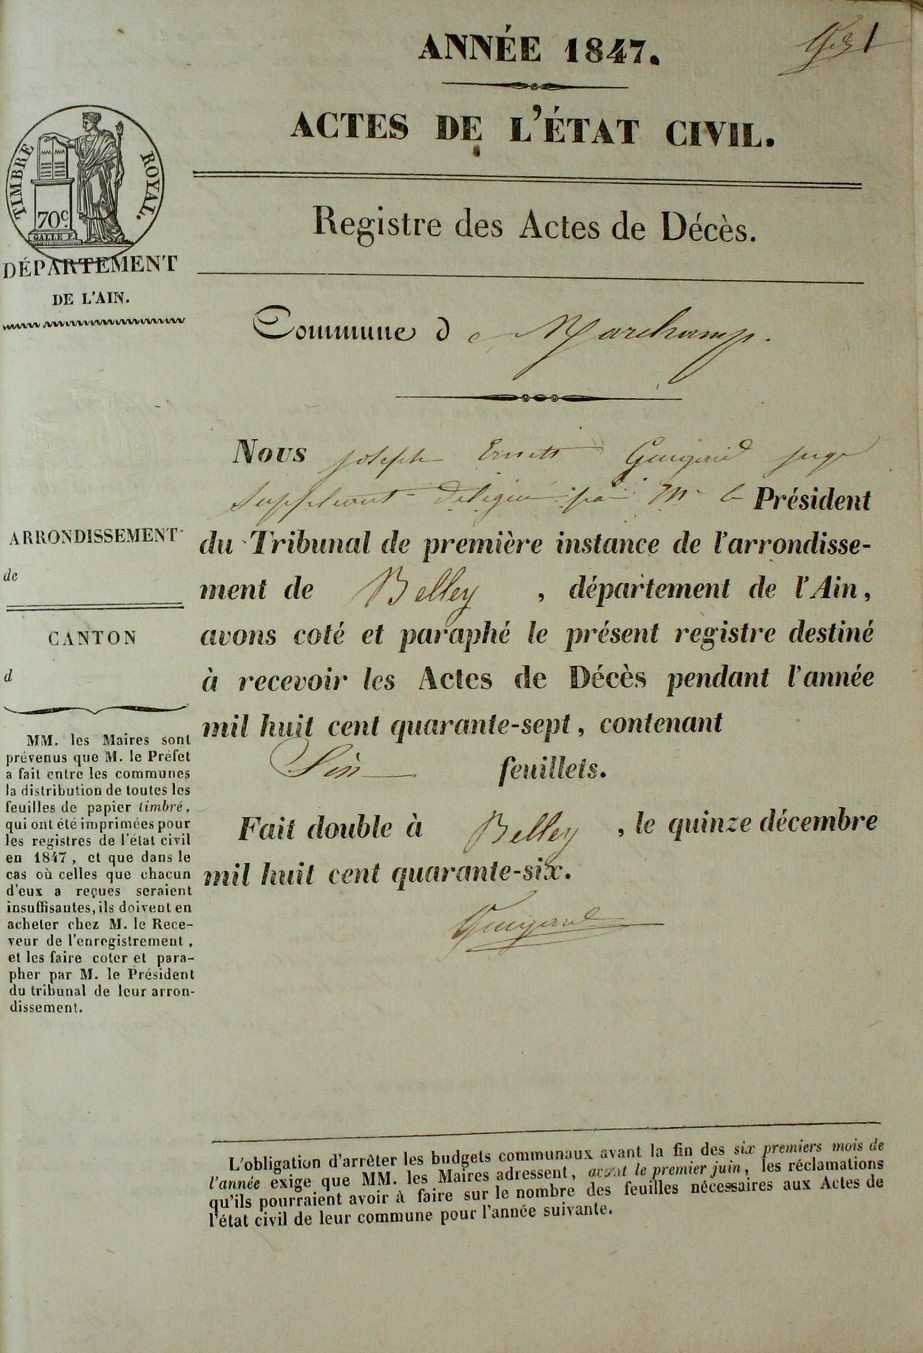 ANNÉE 1847.
1
ACTES DE L'ÉTAT CIVIL.
TIMBRE ROYAL.
70c
Registre des Actes de Décès.
DÉPARTEMENT
DE L'AIN.
Commune de Marchamp.
Nous Joseph Ernest Guigard juge
Suppléant délégué par Mr le Président
du Tribunal de première instance de l'arrondisse-
ment de Belley, département de l'Ain,
avons coté et paraphé le présent registre destiné
à recevoir les Actes de Décès pendant l'année
mil huit cent quarante-sept, contenant
feuillets.
Fait double à Belley, le quinze décembre
mil huit cent quarante-six.
Guigard
ARRONDISSEMENT
de
CANTON
d
MM. les Maires sont
prévenus que M. le Préfet
a fait entre les communes
la distribution de toutes les
feuilles de papier timbré,
qui ont été imprimées pour
les registres de l'état civil
en 1847, et que dans le
cas où celles que chacun
d'eux a reçues seraient
insuffisantes, ils doivent en
acheter chez M. le Rece-
veur de l'enregistrement,
et les faire coter et para-
pher par M. le Président
du tribunal de leur arron-
dissement.
L'obligation d'arrêter les budgets communaux avant la fin des six premiers mois de
l'année exige que MM. les Maires adressent, avant le premier juin, les réclamations
qu'ils pourraient avoir à faire sur le nombre des feuilles nécessaires aux Actes de
l'état civil de leur commune pour l'année suivante.